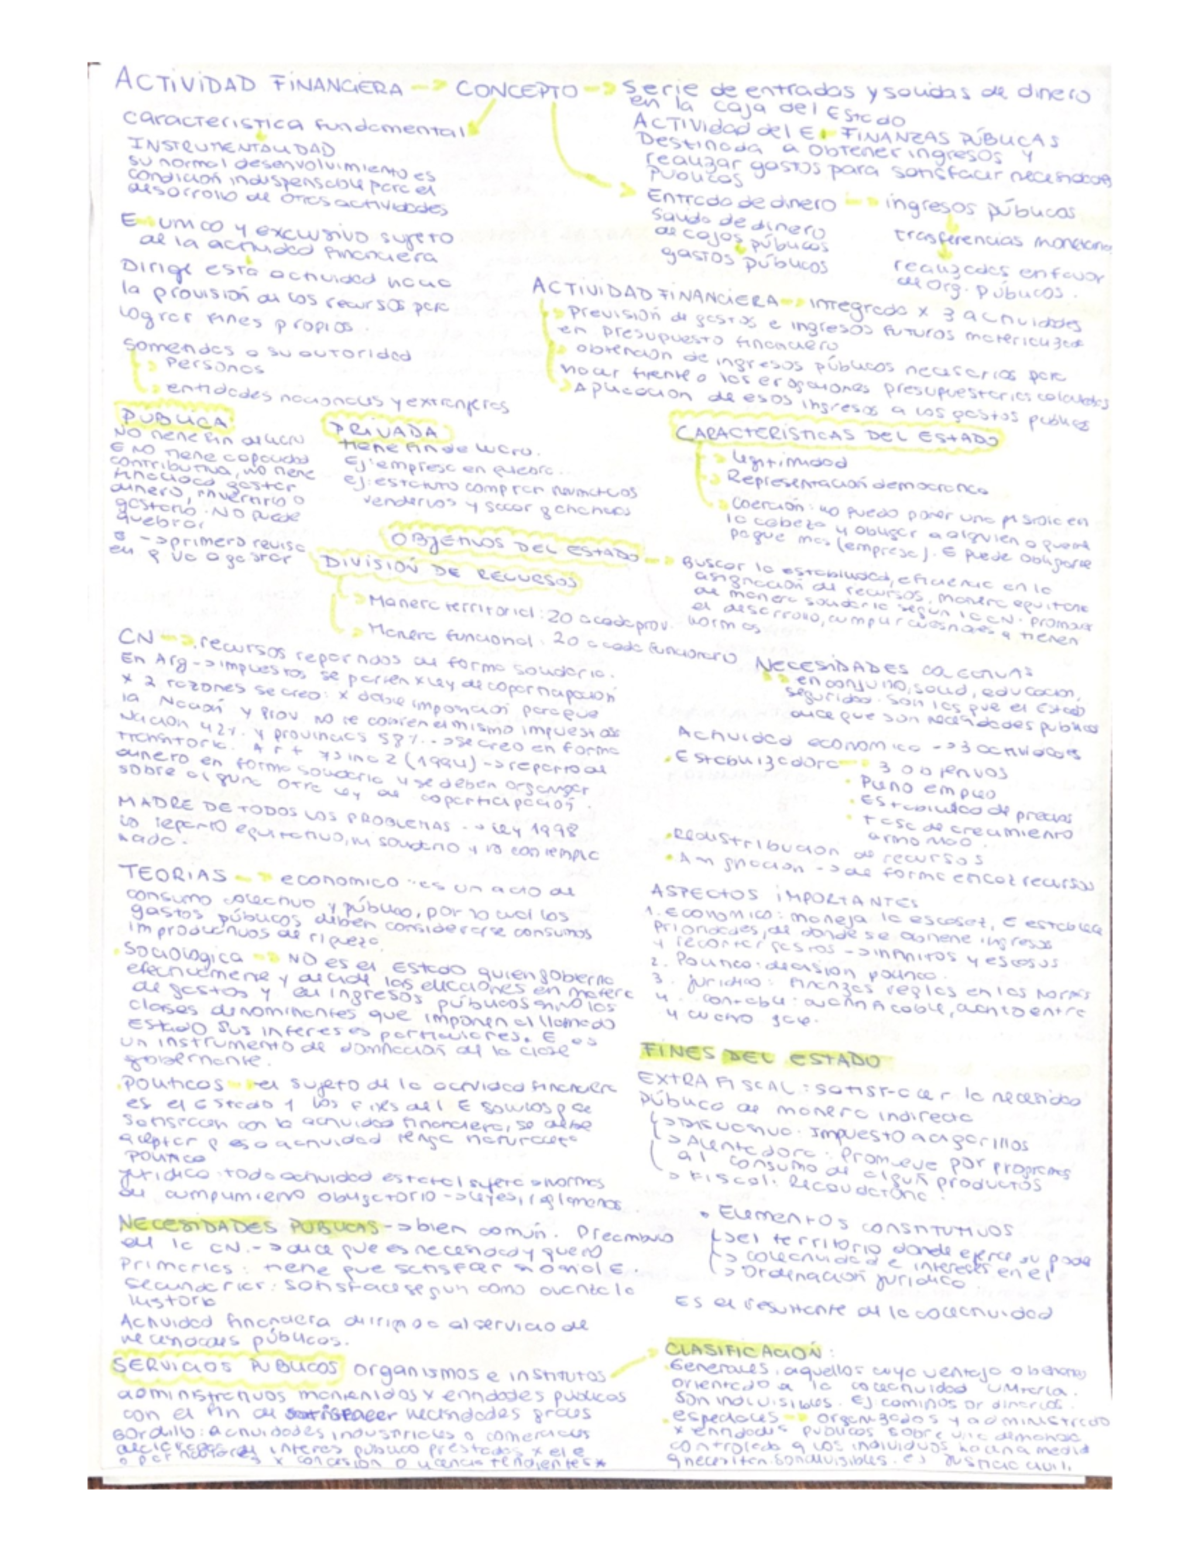 ACTIVIDAD FINANCIERA -> CONCEPTO -> Serie de entradas y salidas de dinero
en la caja del Estado
ACTIVIDAD del E. FINANZAS PÚBLICAS
Destinada a obtener ingresos y
realizar gastos para satisfacer necesidades
públicas
característica fundamental
INSTRUMENTALIDAD
su normal desenvolvimiento es
condición indispensable para el
desarrollo de otras actividades
E -> único y exclusivo sujeto
de la actividad financiera
Dirige esta actividad hacia
la provisión de los recursos para
lograr fines propios
Sometidas a su autoridad
-> Personas
-> entidades nacionales y extranjeras
Entrada de dinero -> ingresos públicos
Salida de dinero
de cajas públicas
gastos públicos
transferencias monetarias
realizadas en favor
de org. públicos.
ACTIVIDAD FINANCIERA -> integrada x 3 actividades
-> Previsión de gastos e ingresos futuros materializada
en presupuesto financiero
-> obtención de ingresos públicos necesarios para
hacer frente a las erogaciones presupuestarias calculadas
-> Aplicación de esos ingresos a los gastos públicos
PÚBLICA
NO tiene fin de lucro
E NO tiene capacidad
contributiva, no tiene
finalidad gastar
dinero, invertirlo o
gastarlo. NO puede
quebrar
-> primero revisa
en q va a gastar
PRIVADA
tiene fin de lucro.
Ej: empresa en quiebra.
venderlos y sacar ganancias
CARACTERÍSTICAS DEL ESTADO
-> Legitimidad
-> Representación democrática
-> Coerción: no puedo poner una pistola en
la cabeza y obligar a alguien a que
pague mas (empresa). E puede obligarte
OBJETIVOS DEL ESTADO -> Buscar la estabilidad, eficiencia en la
asignación de recursos, manera equitativa
de manera solidaria según la CN. promover
el desarrollo, cumplir
normas.
DIVISIÓN DE RECURSOS
-> Manera territorial: 20 a cada prov.
-> Manera funcional: 20 a cada funcionario
CN -> recursos repartidos de forma solidaria.
En Arg -> impuestos se parten x ley de coparticipación
x 2 razones se creo: x doble imposición para que
la Nación y prov no te cobren el mismo impuesto
Nación 42% y provincias 58% -> se creo en forma
transitoria. Art 75 inc 2 (1994) -> reparto de
dinero en forma solidaria y se deben organizar
sobre alguna otra ley de coparticipación.
MADRE DE TODOS LOS PROBLEMAS -> Ley 1998
NECESIDADES COLECTIVAS
-> en conjunto, salud, educación,
seguridad. Son las que el Estado
dice que son necesidades públicas
Actividad económica -> 3 actividades
. Estabilizadora -> 3 objetivos
. Pleno empleo
. Estabilidad de precios
. Tasa de crecimiento
armónico.
. Redistribución de recursos
. Asignación -> de forma eficaz recursos
TEORIAS -> económico: es un acto de
consumo colectivo y público, por lo cual los
gastos públicos deben considerarse consumos
improductivos de riqueza.
. Sociológica -> NO es el Estado quien gobierna
efectivamente y decide las elecciones en materia
de gastos y en ingresos públicos sino las
clases denominantes que imponen al llamado
Estado sus intereses particulares. E es
un instrumento de dominación de la clase
gobernante.
. Políticos -> el sujeto de la actividad financiera
es el Estado y los fines del E
satisfacen con la actividad financiera, se debe
aceptar q esa actividad tenga naturaleza
política
Jurídico: toda actividad estatal sujeta a normas
de cumplimiento obligatorio -> leyes, reglamentos
ASPECTOS IMPORTANTES
1. Económico: maneja la escasez, E establece
prioridades, de donde se obtiene ingresos
y recortar gastos -> infinitos y escasos.
2. Político: decisión política.
3. Jurídico: finanzas reglas en las normas
4. contable:
y cuanto
FINES DEL ESTADO
EXTRA FISCAL: satisfacer la necesidad
pública de manera indirecta
-> Disuasiva: Impuesto a cigarrillos
-> Alentadora: Promueve por programas
al consumo de algún productos
-> Fiscal: Recaudatoria.
. Elementos CONSTITUTIVOS
-> el territorio donde ejerce su poder
-> colectividad e intereses en el
-> Ordenación jurídica.
Es el resultante de la colectividad
NECESIDADES PÚBLICAS -> bien común. Preámbulo
de la CN. -> dice que es necesidad y quiero
Primarias: tiene que satisfacer si o si el E.
Secundarias: satisface según como avance la
historia
Actividad financiera dirigida al servicio de
necesidades públicas.
SERVICIOS PÚBLICOS organismos e institutos
administrativos mantenidos x entidades públicas
con el fin de satisfacer necesidades grales
Bordillo: actividades industriales o comerciales
de interés público prestados x el E
o particulares x concesión o licencia tendientes *
CLASIFICACIÓN:
. Generales. aquellos cuyo ventaja o beneficio
orientado a la colectividad
Son indivisibles. ej caminos ordinarios.
. especiales -> organizados y administrados
x entidades públicas sobre
controlado
q necesiten. Son divisibles. ej justicia civil.